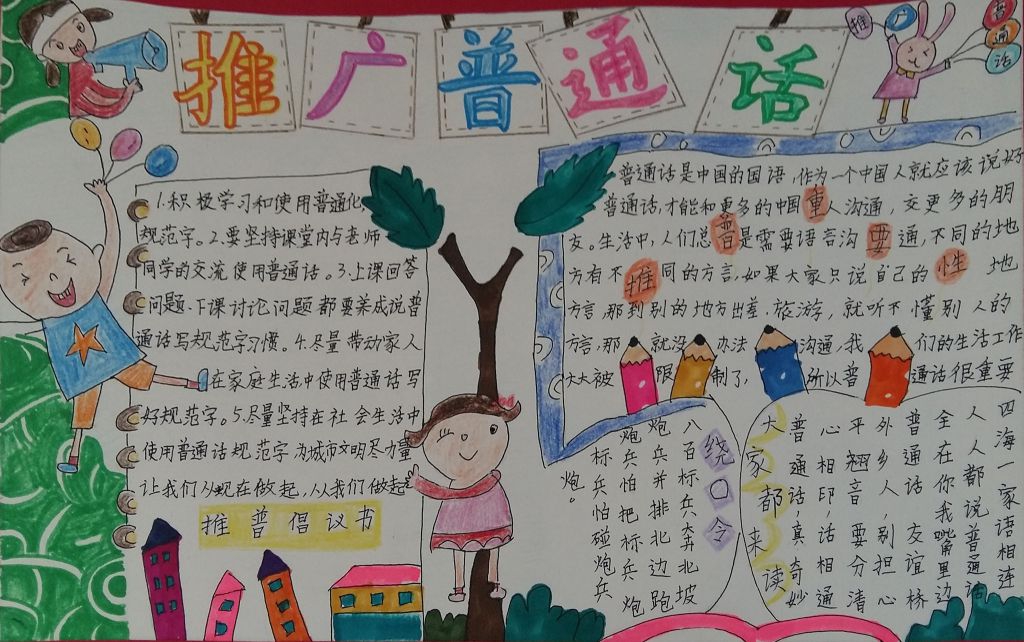 推广普通话
推广普通话
1.积极学习和使用普通化
规范字。2.要坚持课堂内与老师
同学的交流使用普通话。3.上课回答
问题、下课讨论问题都要养成说普
通话写规范字习惯。4.尽量带动家人
在家庭生活中使用普通话写
好规范字。5.尽量坚持在社会生活中
使用普通话规范字为城市文明尽力量
让我们从现在做起,从我们做起
推普倡议书
普通话是中国的国语,作为一个中国人就应该说好
普通话,才能和更多的中国重人沟通,交更多的朋
友。生活中,人们总普是需要语言沟要通,不同的地
方有不推同的方言,如果大家只说自己的性地
方言,那到别的地方出差、旅游,就听不懂别人的
方言,那就没办法沟通,我们的生活工作
大大被限制了,所以普通话很重要
绕口令
八百标兵奔北坡
炮兵并排北边跑
炮兵怕把标兵炮
标兵怕碰炮兵
炮。
四海一家语相连
人人都说普通话
全在你我嘴里边
普通话友谊桥
外乡人,别担心
平翘音,要分清
心相印,话相通
普通话,真奇妙
大家都来读